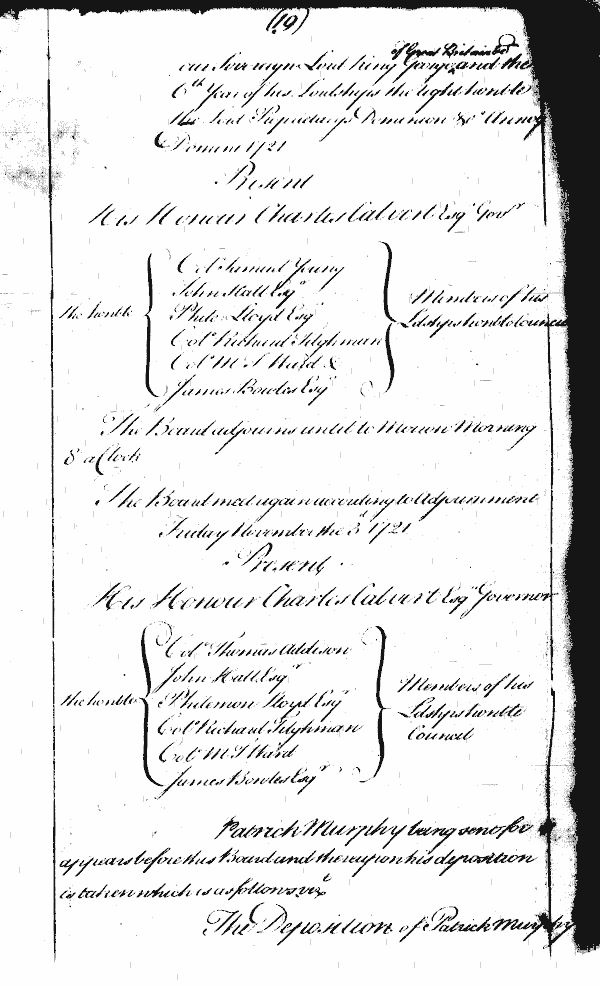 (19)
of Great Britain &c
our Sovereign Lord King George and the
6th Year of his Lordships the right honble
the Lord Proprietarys Dominion &c Annoq
Domini 1721
Present
His Honour Charles Calvert Esqr Govr
the honble
Colo Samuel Young
John Hall Esqr
Philo Lloyd Esqr
Colo Richard Tilghman
Colo M T Ward &
James Bowles Esqr
Members of his
Ldships honble Council
The Board adjourns until to Morrow Morning
8 a Clock
The Board met again according to Adjournment
Friday November the 3d 1721
Present
His Honour Charles Calvert Esqr Governor
the honble
Colo Thomas Addison
John Hall Esqr
Philemon Lloyd Esqr
Colo Richard Tilghman
Colo M T Ward
James Bowles Esqr
Members of his
Ldships honble
Council
Patrick Murphy being sent for
appears before this Board and thereupon his deposition
is taken which is as follows vizt
The Deposition of Patrick Murphy